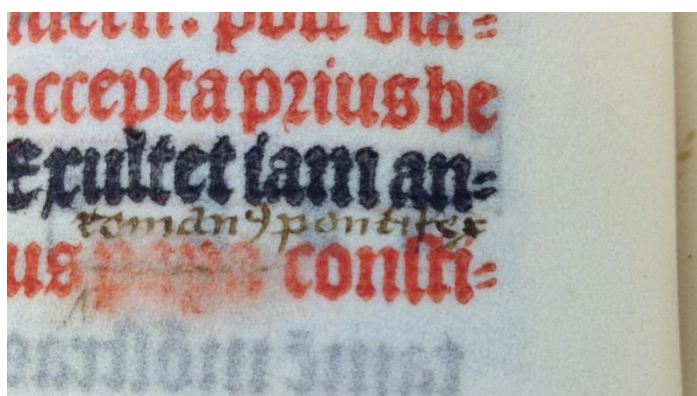 accepta prius be
Exultet iam an=
romanꝰ pontifex
us papa consti=